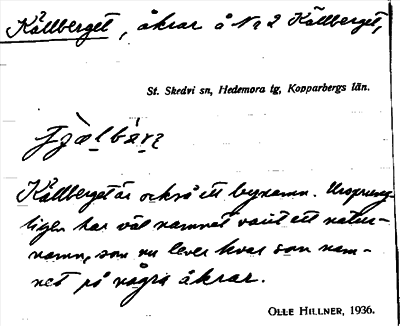 Källberget, åkrar å No 2 Källberget,
St. Skedvi sn, Hedemora tg, Kopparbergs län.
Källberget är också ett bynamn. Ursprung-
ligen har väl namnet varit ett natur-
namn, som nu lever kvar som nam-
net på några åkrar.
OLLE HILLNER, 1936.